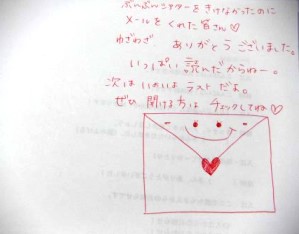 ぶんぶんシアターをきけなかったのに
メールをくれた皆さん♡
わざわざ ありがとうございました。
いっぱい 読んだからねー。
次は いよいよ ラストだよ。
ぜひ 聞ける方は チェックしてね♡